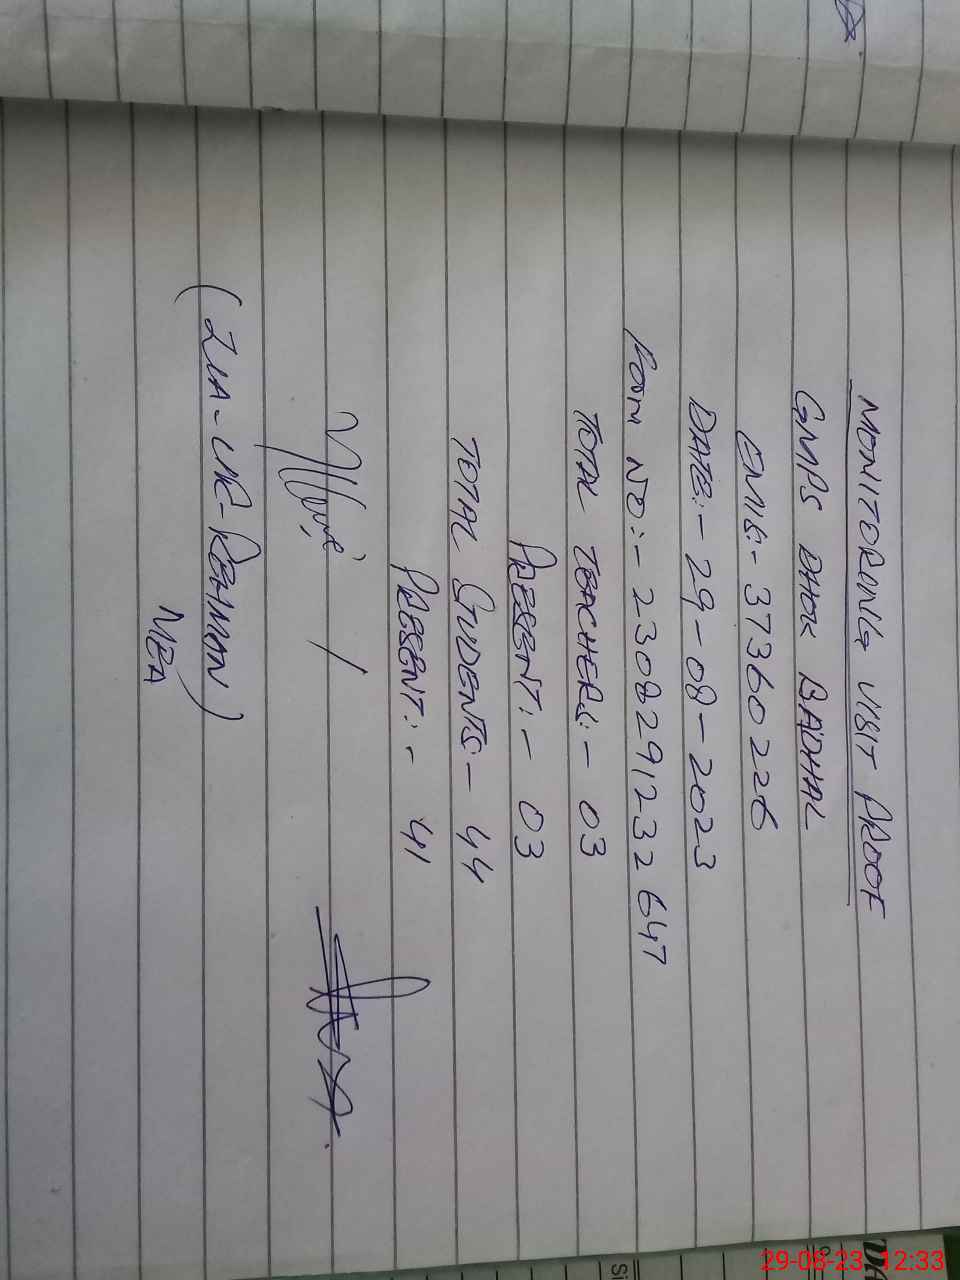 MONITORING VISIT PROOF
GMPS DHOK BADHAL
EMIS:- 37360226
DATE:- 29-08-2023
FORM NO:- 2308291232647
TOTAL TEACHERS:- 03
PRESENT:- 03
TOTAL STUDENTS:- 44
PRESENT:- 41
(ZIA-UR-REHMAN)
MEA
29-08-23 12:33